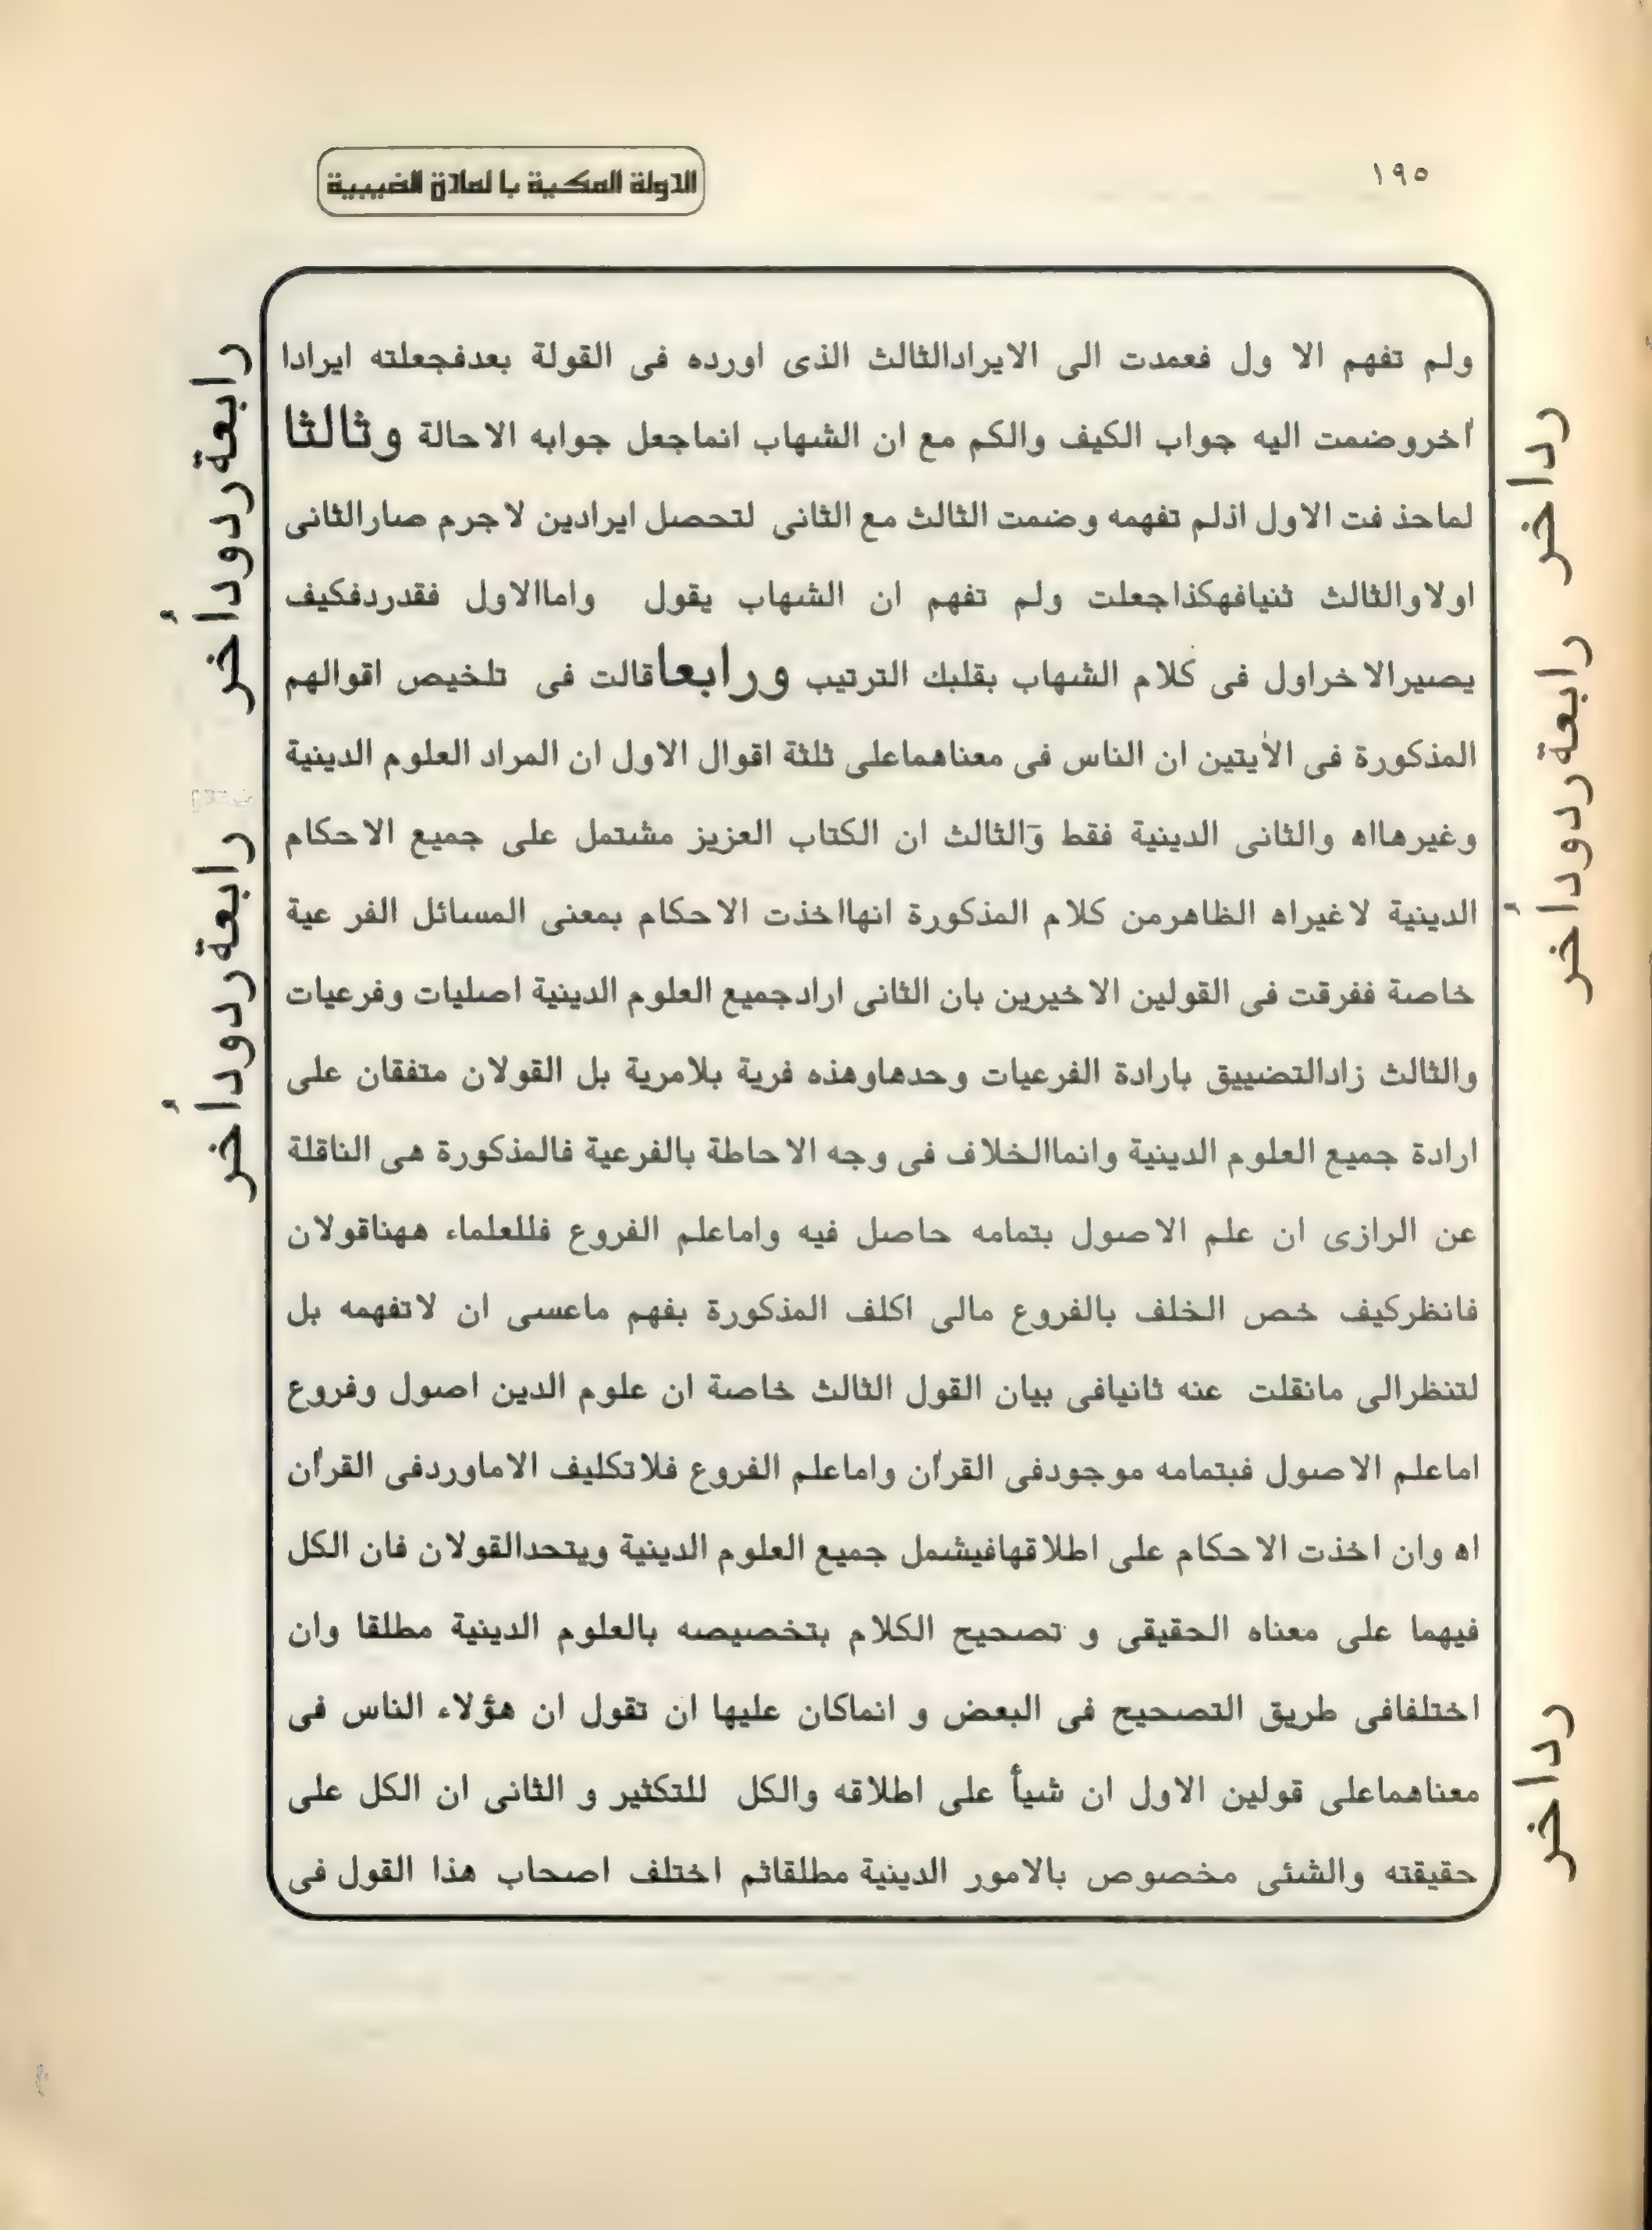 ١٩٥
الدولة المكية با لمادة الغيبية
ولم تفهم الا ول فعمدت الى الايرادالثالث الذى اورده فى القولة بعدفجعلته ايرادا
اٰخروضمت اليه جواب الكيف والكم مع ان الشهاب انماجعل جوابه الاحالة وثالثا
لماحذ فت الاول اذلم تفهمه وضمت الثالث مع الثانى لتحصل ايرادين لاجرم صارالثانى
اولاوالثالث ثنيافهكذاجعلت ولم تفهم ان الشهاب يقول واماالاول فقدردفكيف
يصيرالاخراول فى كلام الشهاب بقلبك الترتيب ورابعاقالت فى تلخيص اقوالهم
المذكورة فى الأيتين ان الناس فى معناهماعلى ثلثة اقوال الاول ان المراد العلوم الدينية
وغيرهااه والثانى الدينية فقط وَالثالث ان الكتاب العزيز مشتمل على جميع الاحكام
الدينية لاغيراه الظاهرمن كلام المذكورة انهااخذت الاحكام بمعنى المسائل الفر عية
خاصة ففرقت فى القولين الاخيرين بان الثانى ارادجميع العلوم الدينية اصليات وفرعيات
والثالث زادالتضييق بارادة الفرعيات وحدهاوهذه فرية بلامرية بل القولان متفقان على
ارادة جميع العلوم الدينية وانماالخلاف فى وجه الاحاطة بالفرعية فالمذكورة هى الناقلة
عن الرازى ان علم الاصول بتمامه حاصل فيه واماعلم الفروع فللعلماء ههناقولان
فانظركيف خص الخلف بالفروع مالى اكلف المذكورة بفهم ماعسى ان لاتفهمه بل
لتنظرالى مانقلت عنه ثانيافى بيان القول الثالث خاصة ان علوم الدين اصول وفروع
اماعلم الاصول فبتمامه موجودفى القرأن واماعلم الفروع فلاتكليف الاماوردفى القرأن
اه وان اخذت الاحكام على اطلاقهافيشمل جميع العلوم الدينية ويتحدالقولان فان الكل
فيهما على معناه الحقيقى و تصحيح الكلام بتخصيصه بالعلوم الدينية مطلقا وان
اختلفافى طريق التصحيح فى البعض و انماكان عليها ان تقول ان هؤلاء الناس فى
معناهماعلى قولين الاول ان شيأ على اطلاقه والكل للتكثير و الثانى ان الكل على
حقيقته والشئى مخصوص بالامور الدينية مطلقاثم اختلف اصحاب هذا القول فى
رداخر
رابعة ردوداُخر
رداخر
رابعة ردوداُخر
رابعة ردوداُخر